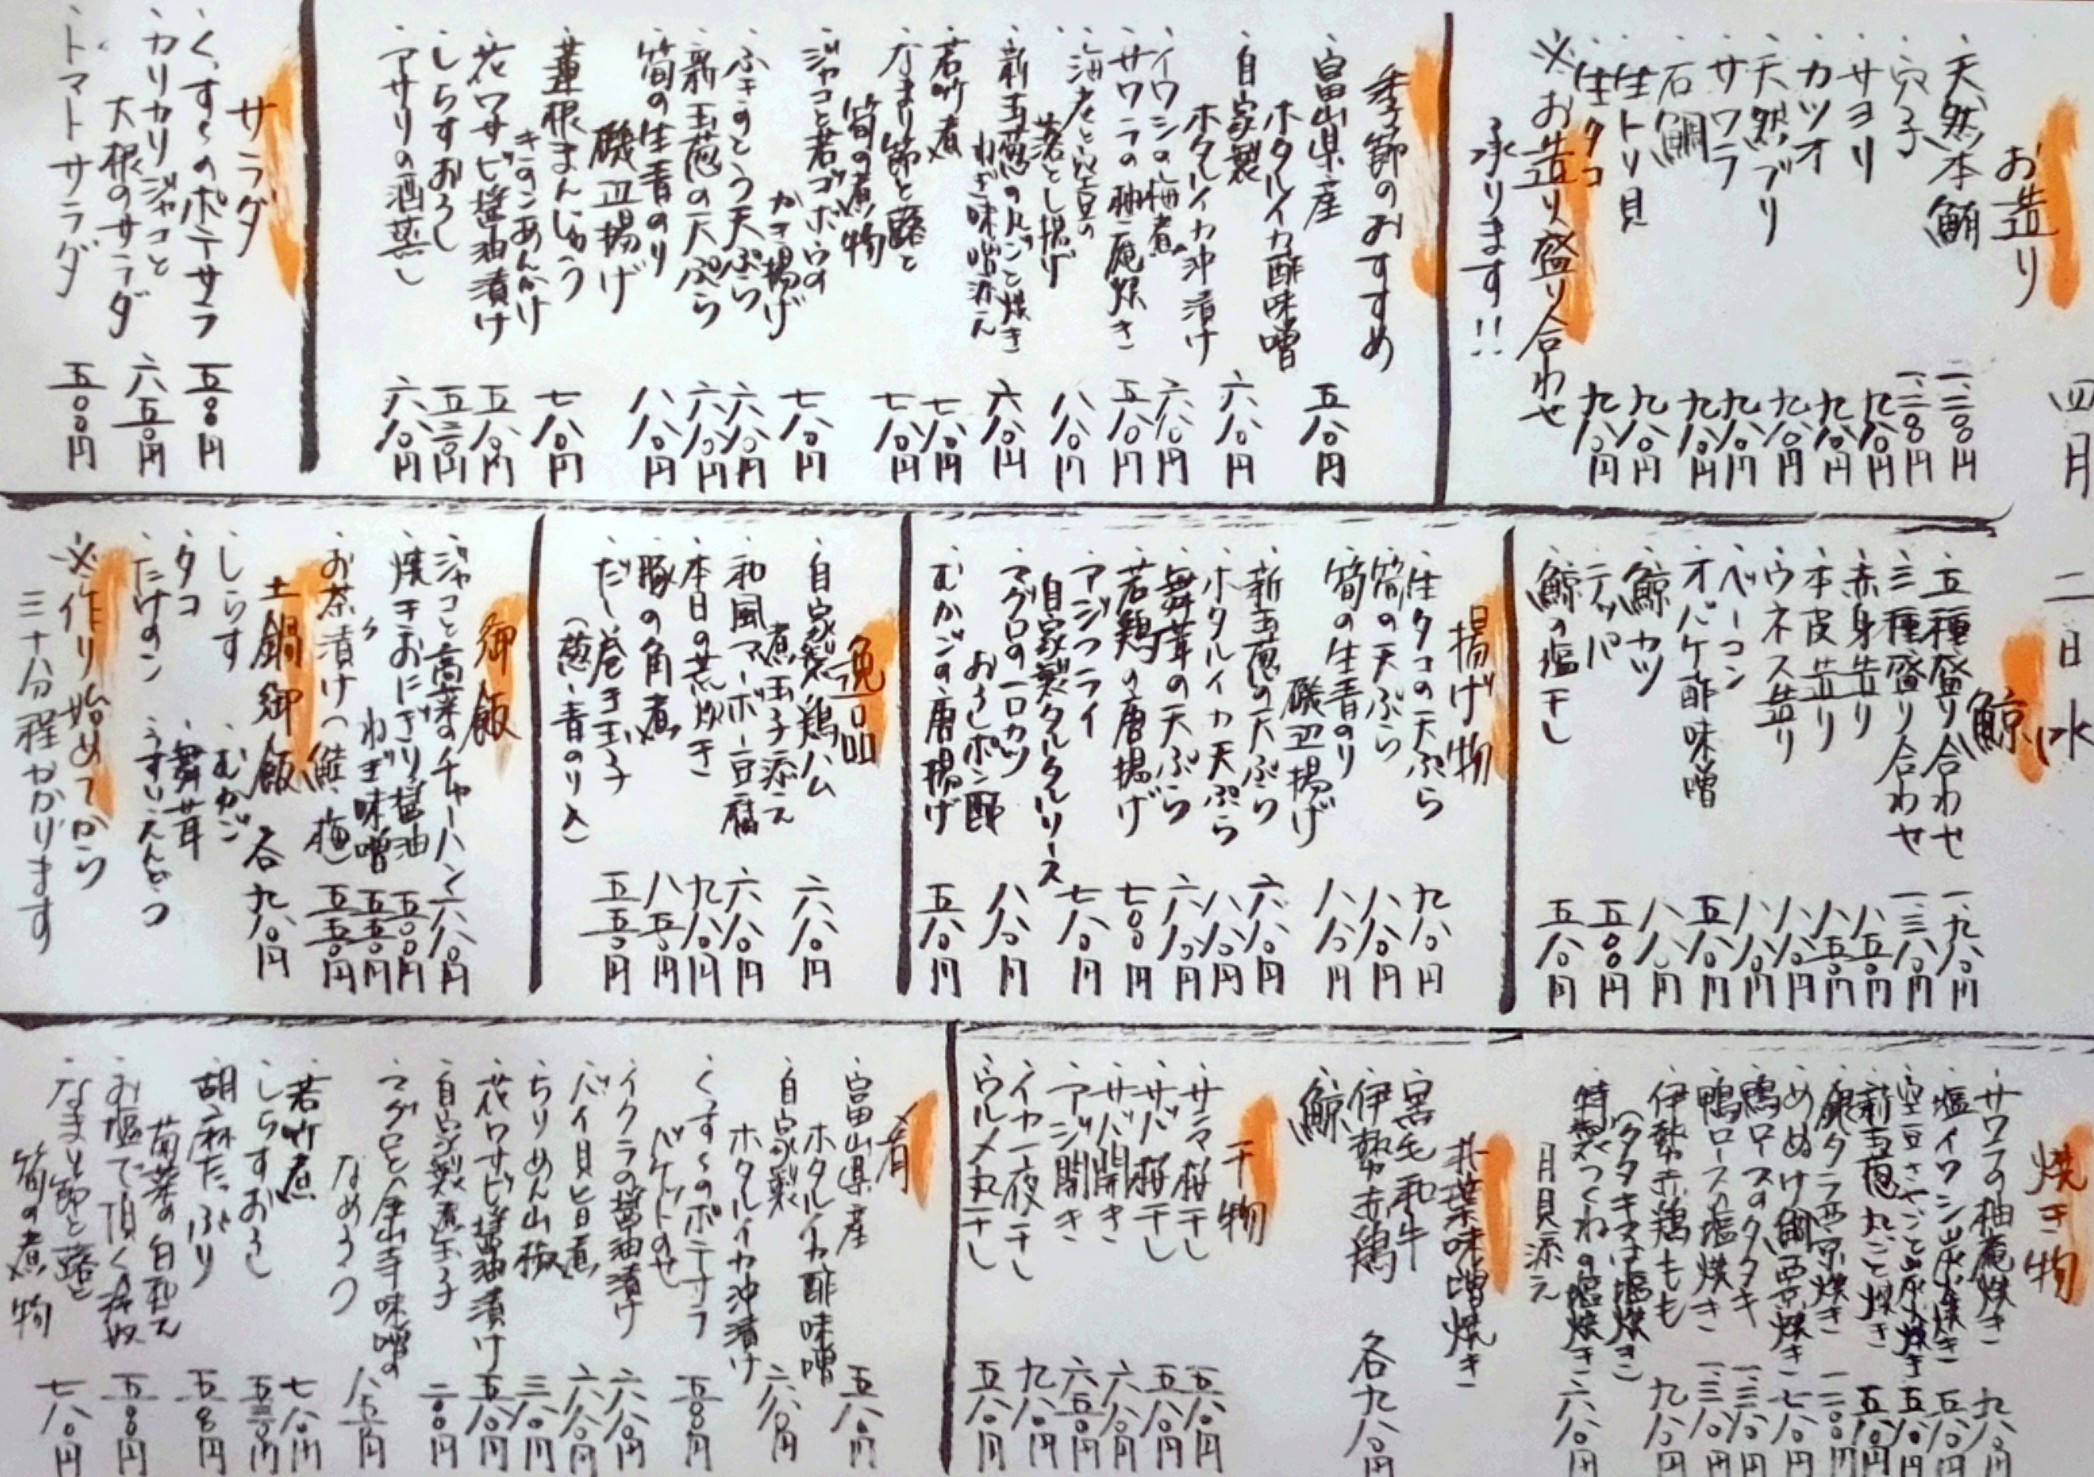 四月二日水
お造り
・天然本鮪 一、二〇〇円
・穴子 一、二〇〇円
・サヨリ 九八〇円
・カツオ 九八〇円
・天然ブリ 九八〇円
・サワラ 九八〇円
・石鯛 九八〇円
・生トリ貝 九八〇円
・生タコ 九八〇円
※お造り盛り合わせ
承ります!!
季節のおすすめ
・富山県産
ホタルイカ酢味噌 五八〇円
・自家製
ホタルイカ沖漬け 六八〇円
・イワシの梅煮 六八〇円
・サワラの柚庵焼き 五八〇円
・海老と空豆の
落とし揚げ 八八〇円
・新玉葱の丸ごと焼き
ねぎ味噌添え 六八〇円
・若竹煮 七八〇円
・なまり節と蕗と
筍の煮物 七八〇円
・ジャコと若ゴボウの
かき揚げ 七八〇円
・ふきのとう天ぷら 六八〇円
・新玉葱の天ぷら 六八〇円
・筍の生青のり
磯辺揚げ 八八〇円
・蓮根まんじゅう
きのこあんかけ 七八〇円
・花ワサビ醤油漬け 五八〇円
・しらすおろし 五三〇円
・アサリの酒蒸し 六八〇円
サラダ
・くずくのポテサラ 五〇〇円
・カリカリジャコと
大根のサラダ 六五〇円
・トマトサラダ 五〇〇円
鯨
・五種盛り合わせ 一、九八〇円
・三種盛り合わせ 一、三八〇円
・赤身造り 八五〇円
・本皮造り 八五〇円
・ウネス造り 八八〇円
・ベーコン 八八〇円
・オバケ酢味噌 五八〇円
・鯨カツ 八八〇円
・テッパ 五〇〇円
・鯨の塩干し 五八〇円
揚げ物
・生タコの天ぷら 九八〇円
・筍の天ぷら 八八〇円
・筍の生青のり
磯辺揚げ 八八〇円
・新玉葱の天ぷら 六八〇円
・ホタルイカ天ぷら 八八〇円
・舞茸の天ぷら 六八〇円
・若鶏の唐揚げ 七〇〇円
・アジフライ
自家製タルタルソース 七八〇円
・マグロの一口カツ
おろしポン酢 八八〇円
・むかごの唐揚げ 五八〇円
逸品
・自家製鶏ハム
煮玉子添え 六八〇円
・和風マーボー豆腐 六八〇円
・本日の荒炊き 九八〇円
・豚の角煮 八五〇円
・だし巻き玉子
(葱・青のり入) 五五〇円
御飯
・ジャコと高菜のチャーハン 六八〇円
・焼きおにぎり醤油 五〇〇円
・〃 ねぎ味噌 五五〇円
・お茶漬け(鮭・梅) 五五〇円
土鍋御飯 各九八〇円
・しらす ・むかご
・タコ ・舞茸
・たけのこ ・うすいえんどう
※作り始めてから
三十分程かかります
焼き物
・サワラの柚庵焼き 九八〇円
・塩イワシ炭火焼き 五八〇円
・空豆さやごと炭火焼き 五八〇円
・新玉葱丸ごと焼き 五八〇円
・銀ダラ西京焼き 一、二〇〇円
・めぬけ鯛西京焼き 七八〇円
・鴨ロースのタタキ 一、三八〇円
・鴨ロース塩焼き 一、三八〇円
・伊勢赤鶏もも
(タタキ又は塩焼き) 九八〇円
・特製つくねの塩焼き
月見添え 六八〇円
朴葉味噌焼き
・黒毛和牛
・伊勢赤鶏 各九八〇円
・鯨
干物
・サンマ桜干し 五八〇円
・サバ桜干し 五八〇円
・サバ開き 六八〇円
・アジ開き 六五〇円
・イカ一夜干し 九八〇円
・ウルメ丸干し 五八〇円
肴
・富山県産
ホタルイカ酢味噌 五八〇円
・自家製
ホタルイカ沖漬け 六八〇円
・くずくのポテサラ
バケットのせ 五〇〇円
・イクラの醤油漬け 六八〇円
・バイ貝旨煮 六八〇円
・ちりめん山椒 三八〇円
・花ワサビ醤油漬け 五八〇円
・自家製煮玉子 二〇〇円
・マグロと金山寺味噌の
なめろう 八五〇円
・若竹煮 七八〇円
・しらすおろし 五三〇円
・胡麻たっぷり
菊菜の白和え 五八〇円
・お塩で頂く冷奴 五〇〇円
・なまり節と蕗と
筍の煮物 七八〇円